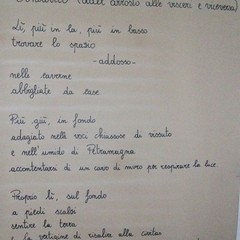 (dall' arrosto alle viscere e viceversa)
Lì, più in la, più in basso
trovare lo spazio
- addosso -
nelle caverne
abbigliate da case
Più giù, in fondo
adagiato nelle voci chiassose di vissuto
e nell'umido di Petramagna
accontentarsi di un cono di moro per respirare la luce.
Proprio lì, sul fondo
a piedi scalzi
sentire la terra
e la vertigine di risalire alla